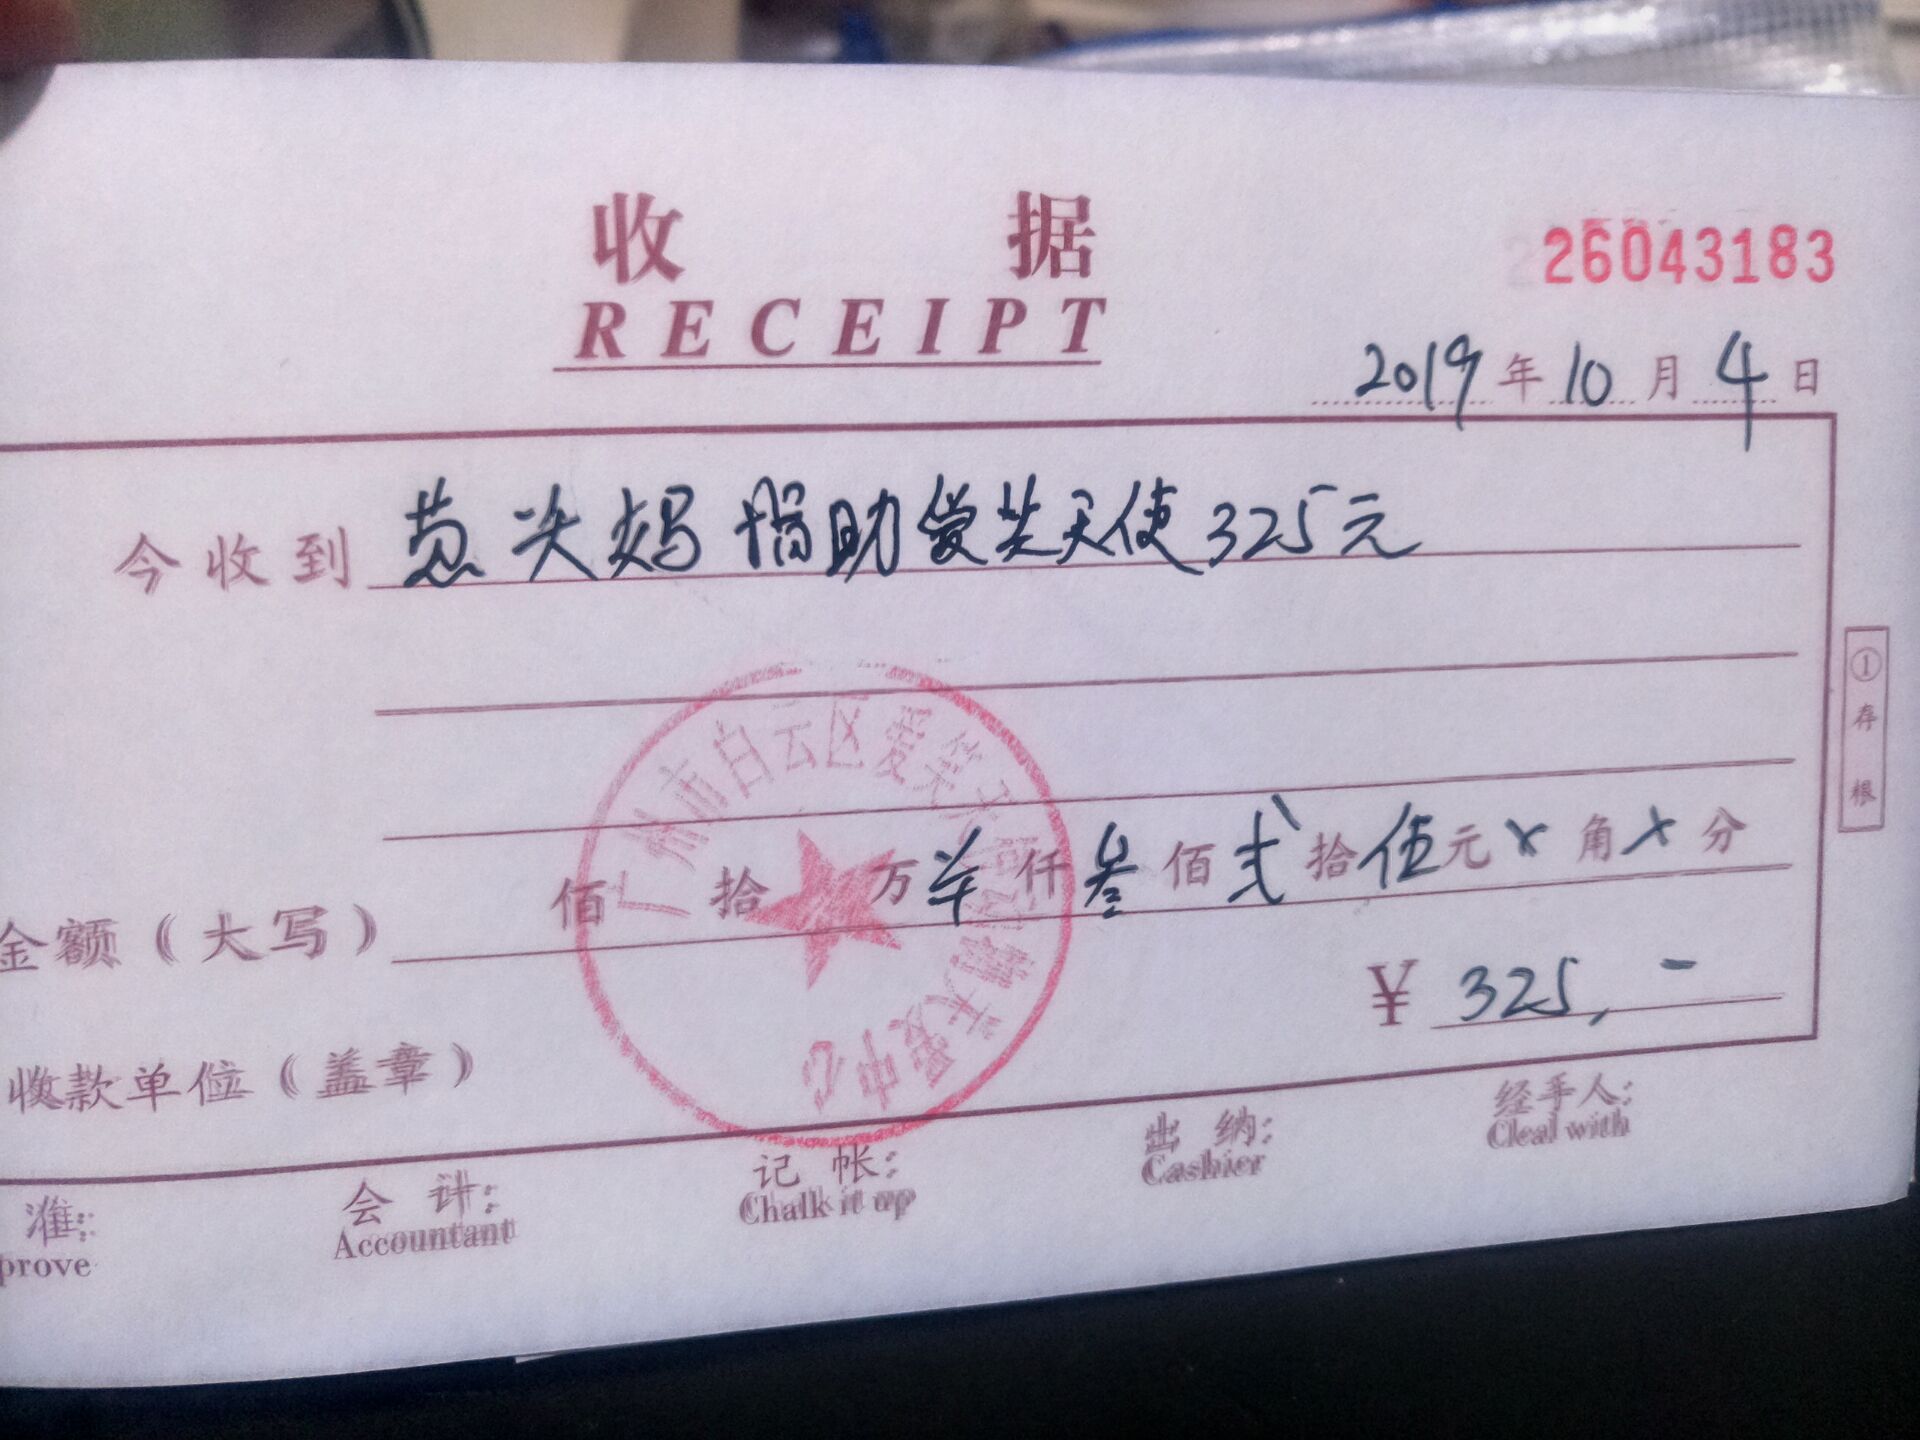 收据
RECEIPT
26043183
2019年10月4日
今收到 葱头妈捐助爱笑天使325元
①存根
金额(大写) 佰 拾 万 仟叁佰弍拾伍元×角×分
¥ 325,-
收款单位(盖章)
广州市白云区爱笑天使 中心
准:
prove
会计:
Accountant
记帐:
Chalk it up
出纳:
Cashier
经手人:
Cleal with